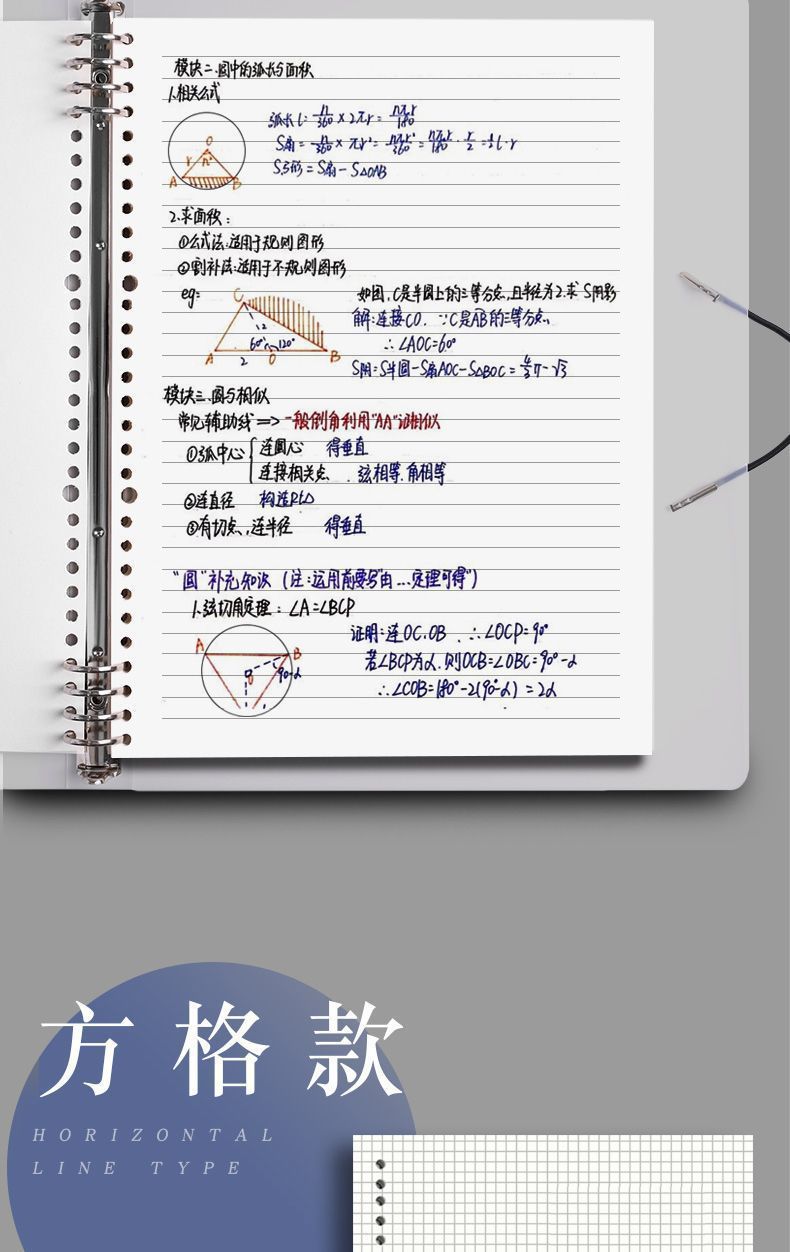 模块二.圆中的弧长与面积
1.相关公式
弧长 l = n/360 × 2πr = nπr/180
S扇 = n/360 × πr² = nπr²/360 = nπr/180 · r/2 = ½ l·r
S弓形 = S扇 - S△OAB
O
r
n°
A
B
2.求面积:
①公式法:适用于规则图形
②割补法:适用于不规则图形
eg:
如图,C是半圆上的三等分点,且半径为2.求 S阴影
解:连接CO. ∵C是AB的三等分点,
∴∠AOC=60°
S阴=S半圆-S扇AOC-S△BOC=4/3π-√3
C
2
60°
120°
A
2
O
B
模块三.圆与相似
常见辅助线 => 一般倒角利用"AA"证相似
①弧中心 { 连圆心 得垂直
连接相关点 . 弦相等.角相等
②连直径 构造Rt△
③有切点,连半径 得垂直
"圆"补充知识 (注:运用前要写"由...定理可得")
1.弦切角定理: ∠A=∠BCP
证明:连OC.OB . ∴∠OCP=90°
若∠BCP为α.则∠OCB=∠OBC=90°-α
∴∠COB=180°-2(90°-α) = 2α
A
B
O
90-α
方格款
HORIZONTAL
LINE TYPE